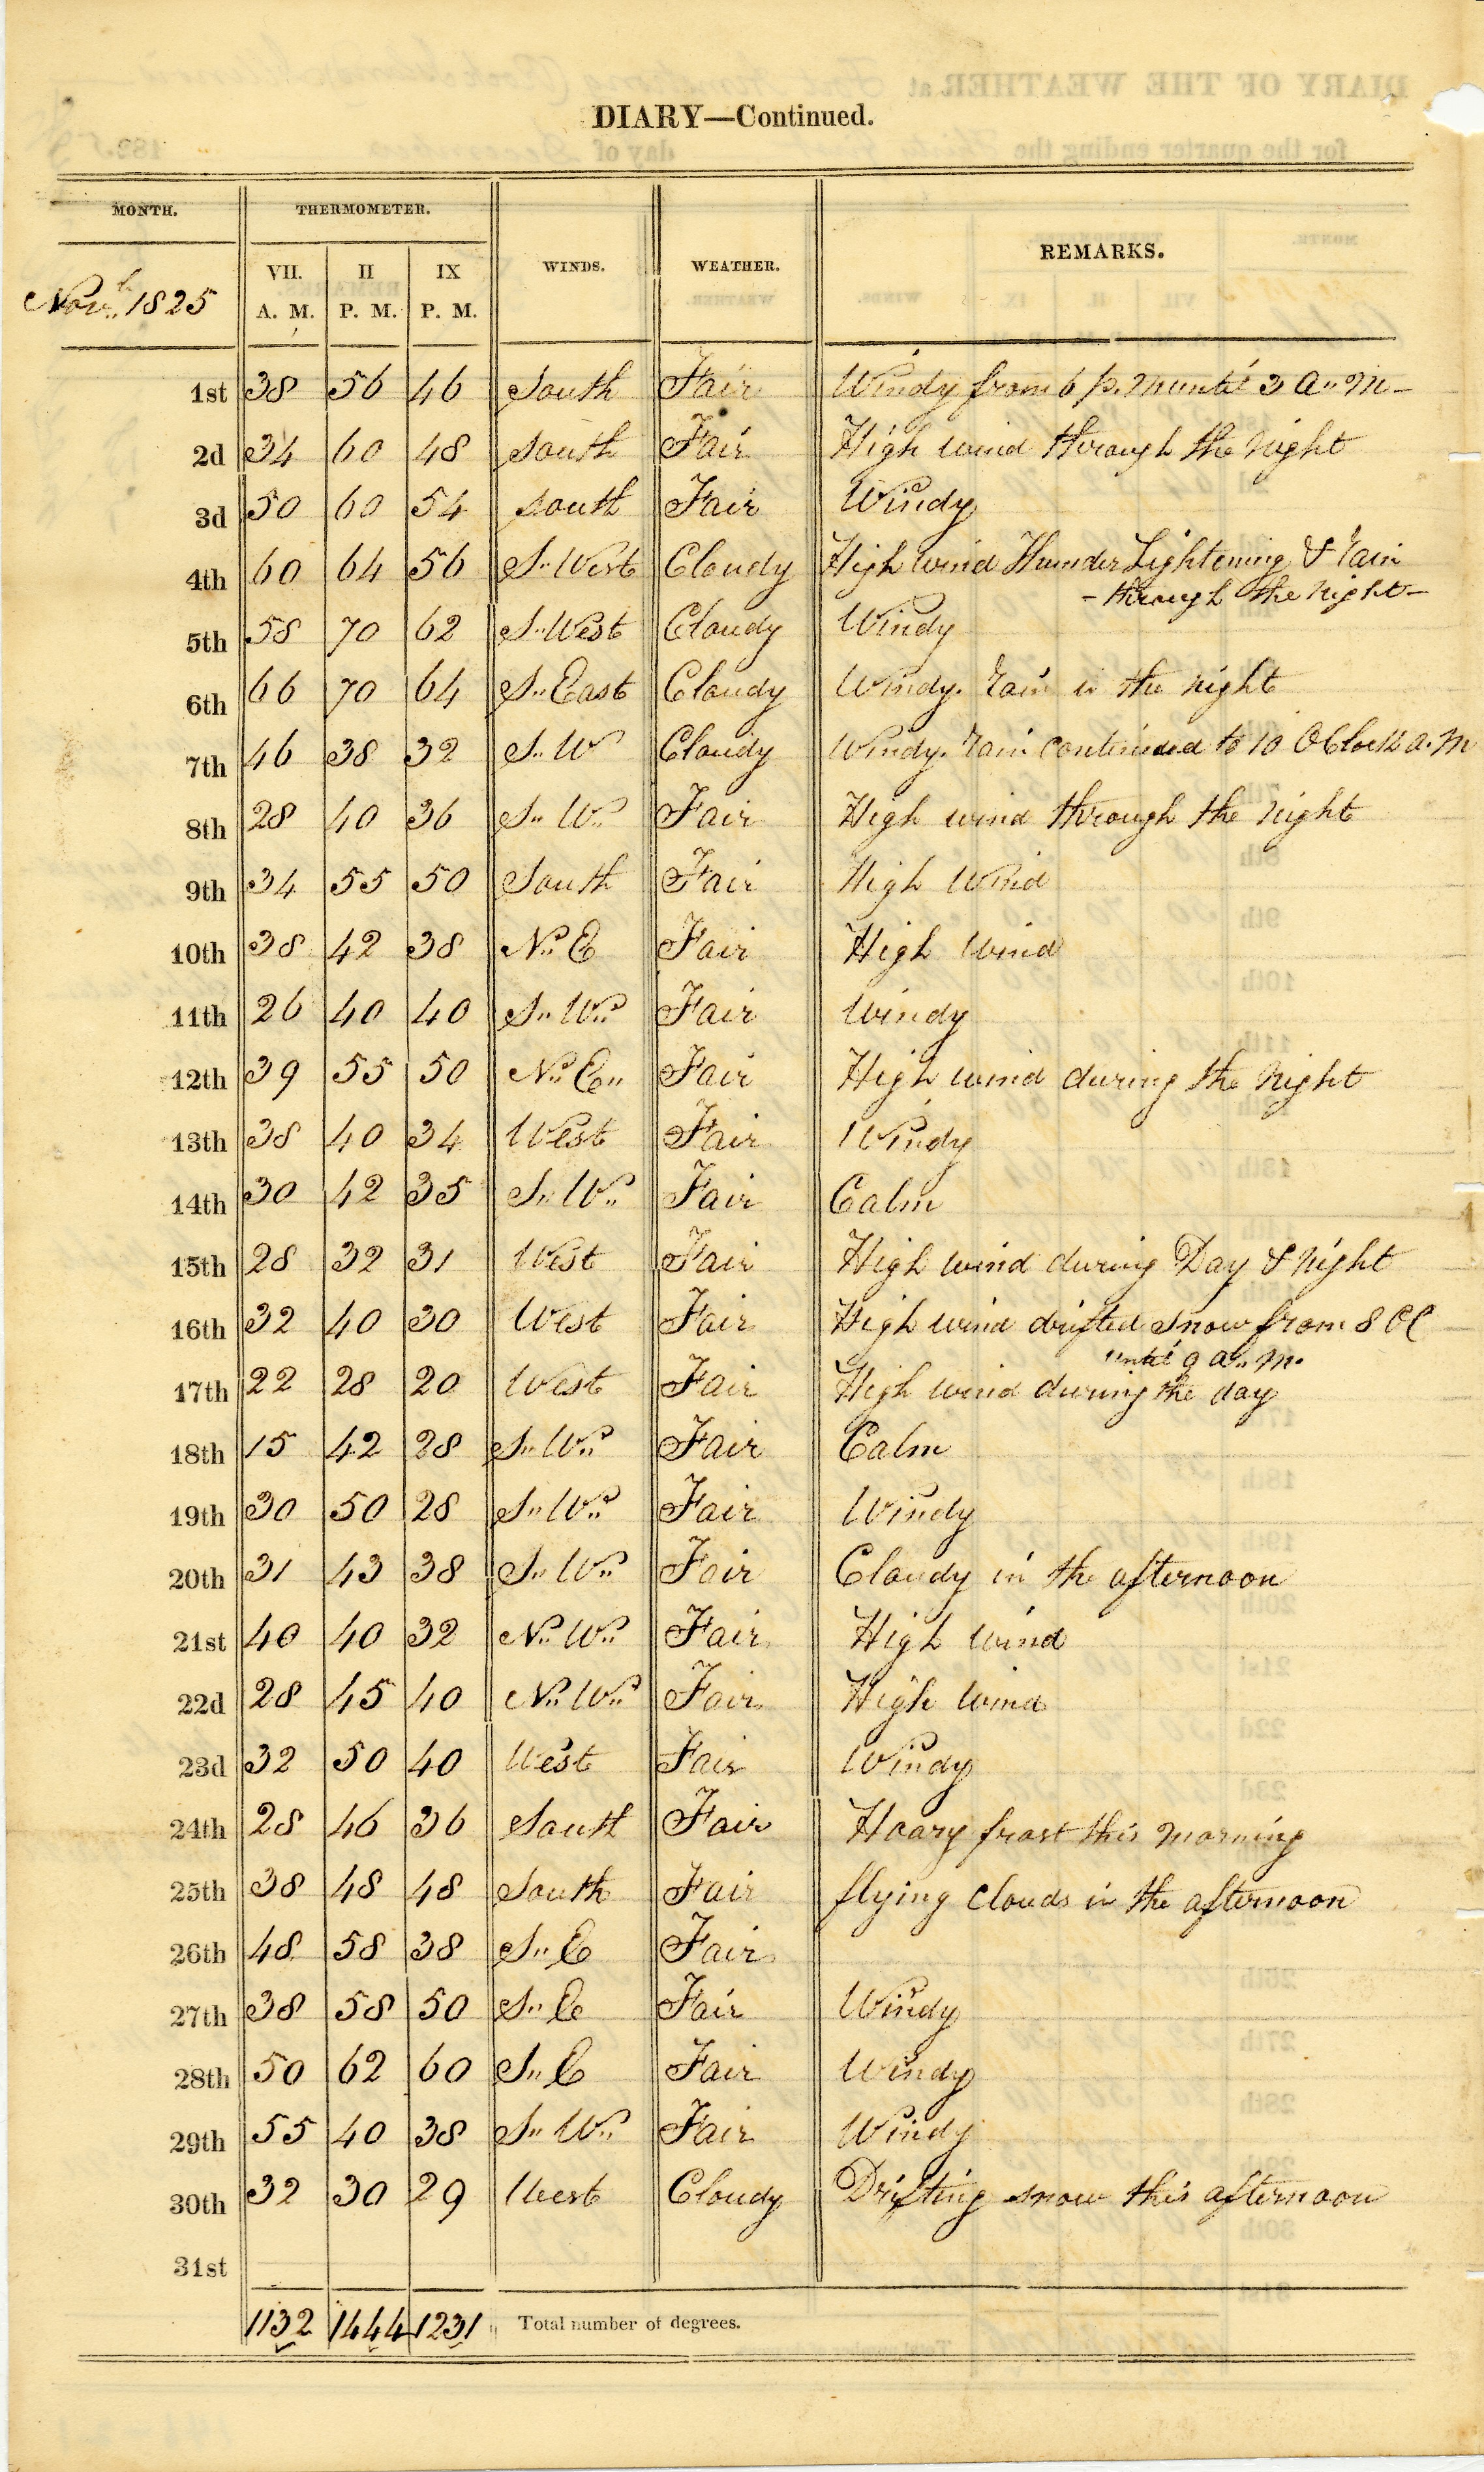 DIARY—Continued.
MONTH. THERMOMETER. WINDS. WEATHER. REMARKS.
VII. A. M. II P. M. IX P. M.
Novr. 1825
1st 38 56 46 South Fair Windy from 6 p. m until 3 a.. m -
2d 34 60 48 South Fair High wind through the night
3d 50 60 54 south Fair Windy
4th 60 64 56 S.. West Cloudy High wind Thunder Lightening & rain
- through the night -
5th 58 70 62 S.. West Cloudy Windy
6th 66 70 64 S.. East Cloudy Windy. rain in the night
7th 46 38 32 S.. W Cloudy Windy. rain continued to 10 OClock a. m
8th 28 40 36 S.. W.. Fair High wind through the night
9th 34 55 50 South Fair High Wind
10th 38 42 38 N.. E Fair High Wind
11th 26 40 40 S.. W.. Fair Windy
12th 39 55 50 N.. E.. Fair High wind during the night
13th 38 40 34 West Fair Windy
14th 30 42 35 S.. W.. Fair Calm
15th 28 32 31 West Fair High wind during Day & night
16th 32 40 30 West Fair High wind drifted snow from 8 OC
until 9 a.. m.
17th 22 28 20 West Fair High wind during the day
18th 15 42 28 S.. W.. Fair Calm
19th 30 50 28 S.. W.. Fair Windy
20th 31 43 38 S.. W.. Fair Cloudy in the afternoon
21st 40 40 32 N.. W.. Fair High wind
22d 28 45 40 N.. W.. Fair High Wind
23d 32 50 40 West Fair Windy
24th 28 46 36 South Fair Hoary frost this morning
25th 38 48 48 South Fair flying clouds in the afternoon
26th 48 58 38 S.. E Fair
27th 38 58 50 S.. E Fair Windy
28th 50 62 60 S.. E Fair Windy
29th 55 40 38 S.. W.. Fair Windy
30th 32 30 29 West Cloudy Drifting snow this afternoon
31st
1132 1444 1231 Total number of degrees.